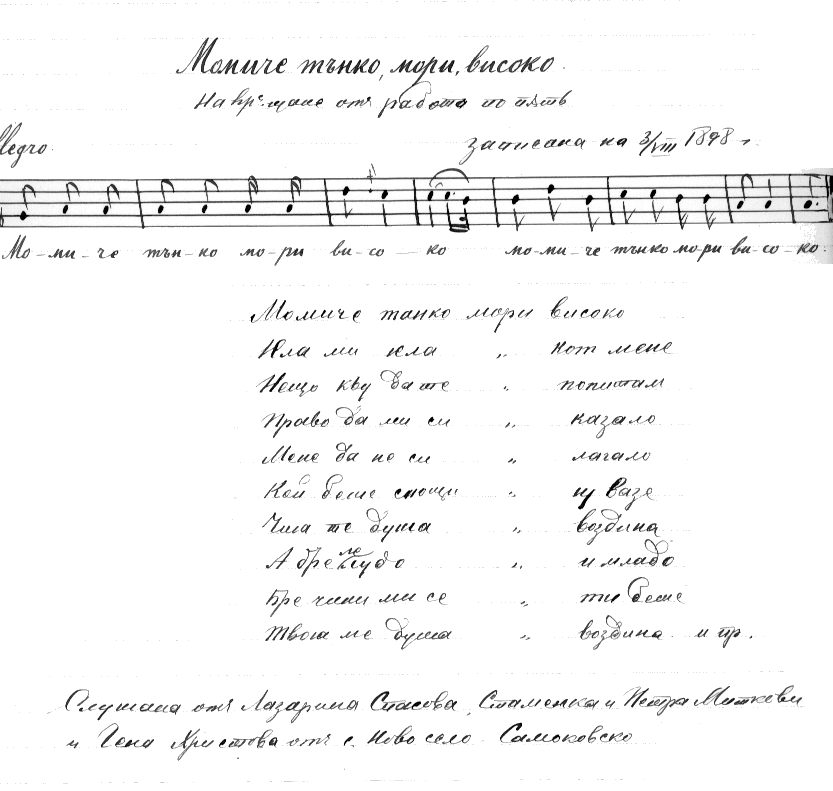 Момиче тънко, мори, високо.
отъ работа по пѫть
llegro.
записана на 3/VIII 1898 г.
Мо-ми-че тън-ко мо-ри ви-со-ко мо-ми-че тънко мо ри ви-со-ко.
Момиче танко мори високо
Юла ми юла „ кот мене
Нещо да те „ попитам
Право да ми си „ казало
Мене да не си „ лагало
Кой беше снощи „ ваше
Чия те душа „ воздина
А бре лудо „ и младо
Бре чини ми се „ ти беше
Твоя ме душа „ воздина и пр.
Слушана отъ Лазарина Спасова, Стаменка и Петра Миткови
и Гена Христова отъ с. Ново село Самоковско